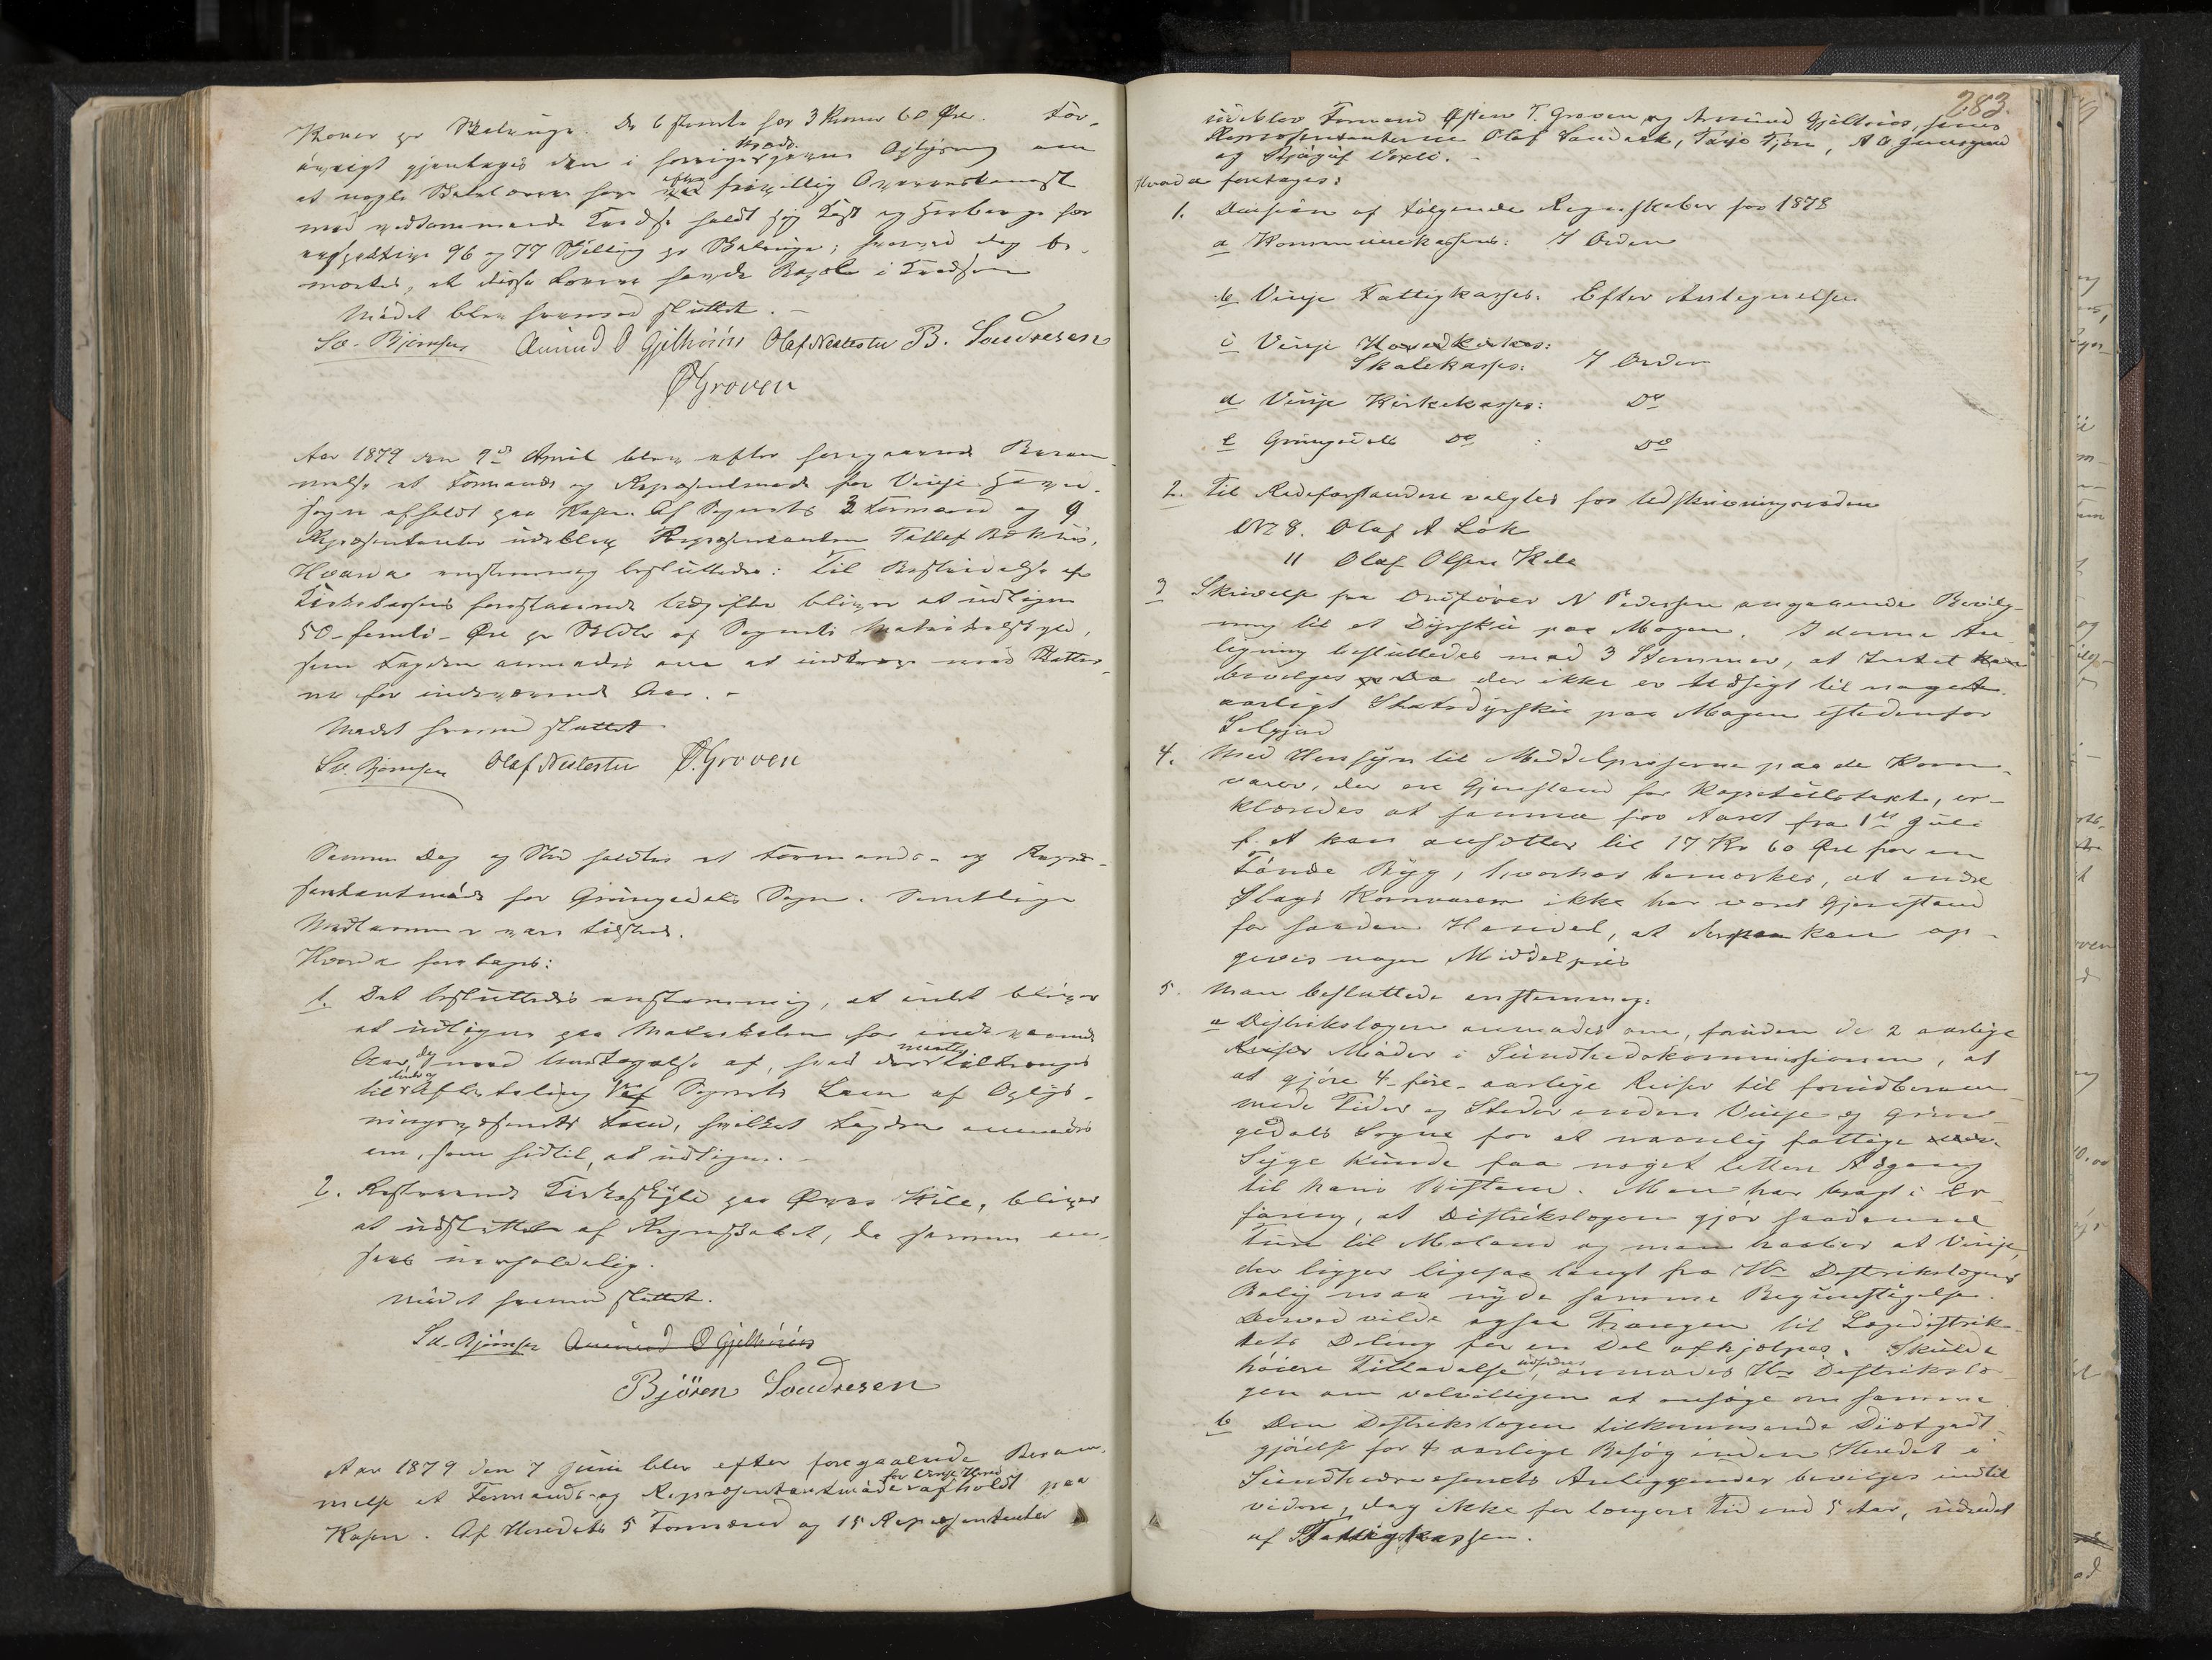 Koner pr Belunge. De 6 støvede for 3 Kroner 60 Øre. For-
øvrigt gjentages den i forrige Møde givne Oplysning om
at nogle efter frivillig Overenskomst
med vedkommende holdt sig Kost og Herberge for
96 og 77 Skilling pr ; hvorved dog be-
mærkes, at disse havde i
Mødet blev hermed sluttet.
Sv. Bjørnsen Aamund O Gjelhuus Olaf Neslestu B. Sondresen
Ø Groven
Aar 1879 den 9de April blev efter foregaaende Beram-
melse et Formands og Repræsentmøde for Vinje Hoved-
sogn afholdt paa Kosen. Af Sognets 3 Formænd og 9
Repræsentanter udeblev Repræsentanten Tallef Bøkhus.
Hvorda enstemmig besluttedes: Til Bestridelse af
Kirkekassens forestaaende Udgifter bliver at udligne
50-femti-Øre pr Skdlr af Sognets Matrikelskyld,
som Fogden anmodes om at indkræve med Skatter-
ne for indeværende Aar. -
Mødet hermed sluttet
Sv. Bjørnsen Olaf Neslestu Ø. Groven
Samme Dag og Sted holdtes et Formands- og Repræ-
sentantmøde for Grungedals Sogn. Samtlige
Medlemmer vare tilstede.
Hvorda foretoges:
1. Det besluttedes enstemmig, at intet bliver
at udligne paa Matrikelen for indeværende
Aar, dog med Undtagelse af, hvad der maatte tiltrænges
til Afbetaling af Sognets Laan af Oplys-
ningsvæsenets Fond, hvilket Fogden anmodes
om, som hidtil, at udligne. -
2. Resterende Kirkeskyld paa Øvre Hile, bliver
at udslette af Regnskabet, da samme an-
sees uerholdelig.
Mødet hermed sluttet.
Sv. Bjørnsen Aamund O Gjelhuus
Björen Sondresen
Aar 1879 den 7 Juni blev efter foregaaende Beram-
melse et Formands og Repræsentantmøde for Vinje Hered afholdt paa
Kosen. Af Heredets 5 Formænd og 15 Repræsentanter
283.
udeblev Formand Østen T. Groven og Aamund Gjelhuus, samt
Repræsentanterne Olaf Sandak, Tarje Tjøn, A O
og
Hvorda foretoges:
1. Decision af følgende Regnskaber for 1878
a Kommunekassens: I Orden
b Vinje Fattigkasses: Efter Antegnelse
c Vinje Hovedkirkes:
Skolekasses: I Orden
d Vinje Kirkekasses: Do
e Grungedals Do : Do
2. Til Rodeforstandere valgtes for Udskrivningsroden
No 8. Olaf A Løk
11 Olaf Olsen Kele
3 Skrivelse fra N Pedersen angaaende Bevilg-
ning til et Dyrskue paa Mogen. I denne An-
ledning besluttedes med 3 Stemmer, at Intet
bevilges da der ikke er Udsigt til noget
aarligt Statsdyrskue paa Mogen istedenfor
Seljord
4. Med Hensyn til Middelpriserne paa de Korn-
varer, der ere Gjenstand for Kapitelstaxt, er-
klæredes at samme for Aaret fra 1ste Juli
f. A kan ansættes til 17 Kr 60 Øre for en
Tønde Byg, hvorhos bemærkes, at andre
Slags Kornvarer ikke har været Gjenstand
for saadan Handel, at derpaa kan op-
gives nogen Middelpris
5. Man besluttede enstemmig:
a Distriktslægen anmodes om, foruden de 2 aarlige
Møder i Sundhedskommissionen, at
at gjøre 4-fire-aarlige Reiser til forudberam-
mede Tider og Steder inden Vinje og Grun-
gedals Sogne for at navnlig fattige
Syge kunde faa noget lettere Adgang
til hans Bistand. Man har bragt i Er-
faring, at Distriktslægen gjør saadanne
Ture til Moland og man haaber at Vinje,
der ligger ligesaa langt fra Hr Distriktslægens
Bolig maa nyde samme Begunstigelse.
Derved vilde ogsaa Trangen til Lægedistrik-
tets Deling for en Del afhjælpes. Skulde
høiere Tilladelse udfordres, anmodes Hr Distriktslæ-
gen om velvilligen at ansøge om samme
b Den Distriktslægen tilkommende Diætgodt-
gjørelse for 4 aarlige Besøg inden Heredet i
Sundhedsvæsenets Anliggender bevilges indtil
videre, dog ikke for længere Tid end 5 Aar, udredet
af Fattigkassen.